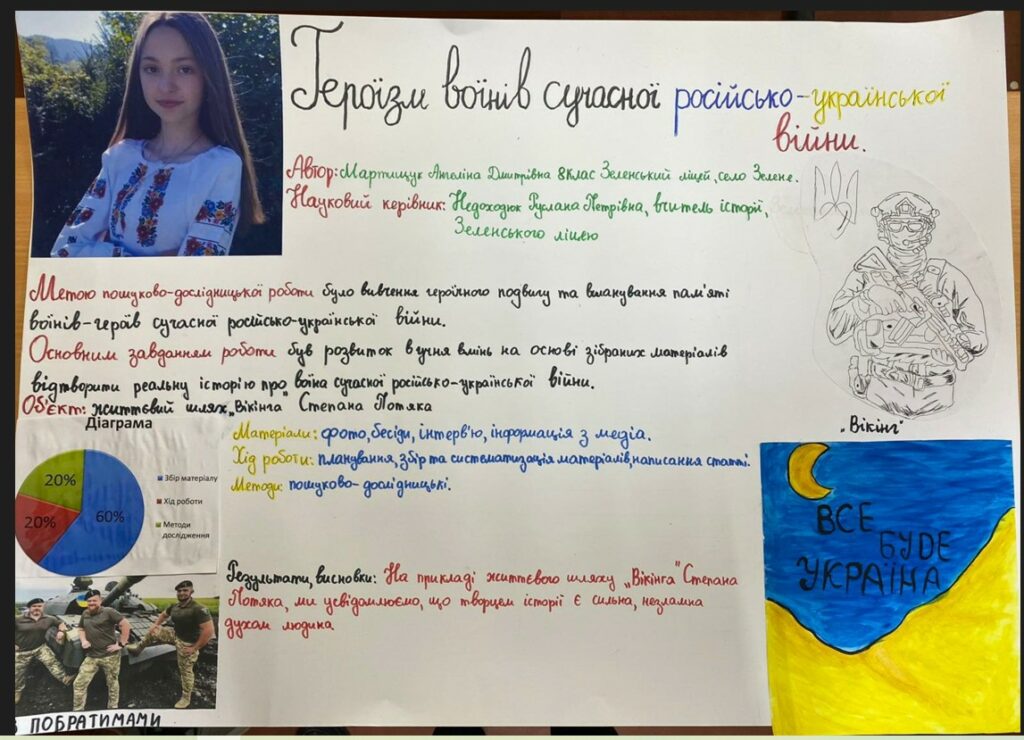 Героїзм воїнів сучасної російсько-української
війни.
Автор: Мартищук Ангеліна Дмитрівна 8 клас Зеленський ліцей, село Зелене.
Науковий керівник: Недоходюк Руслана Петрівна, вчитель історії,
Зеленського ліцею
Метою пошуково-дослідницької роботи було вивчення героїчного подвигу та вшанування пам'яті
воїнів-героїв сучасної російсько-української війни.
Основним завданням роботи був розвиток в учня вмінь на основі зібраних матеріалів
відтворити реальну історію про воїна сучасної російсько-української війни.
Об'єкт: життєвий шлях „Вікінга" Степана Потяка
„Вікінг"
Діаграма
20%
20%
60%
Збір матеріалу
Хід роботи
Методи
дослідження
Матеріали: фото, бесіди, інтерв'ю, інформація з медіа.
Хід роботи: планування, збір та систематизація матеріалів, написання статті.
Методи: пошуково-дослідницькі.
ВСЕ
БУDE
УКРАЇНА
Результати, висновки: На прикладі життєвого шляху „Вікінга" Степана
Потяка, ми усвідомлюємо, що творцем історії є сильна, незламна
духом людина
З ПОБРАТИМАМИ